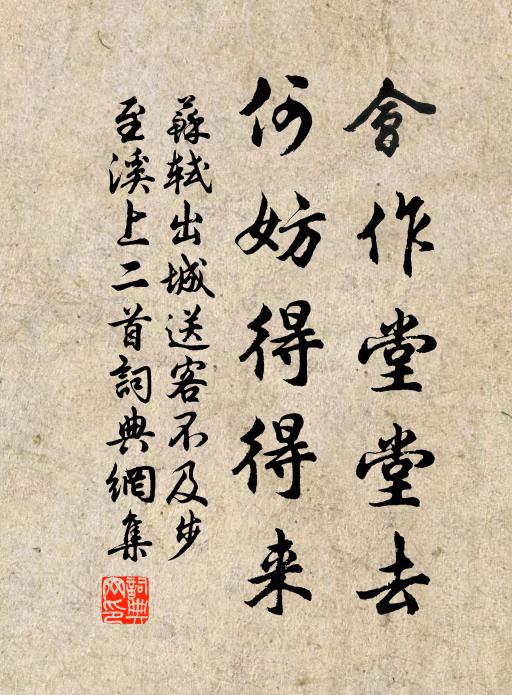 會作堂堂去
何妨得得来
蘇軾出城送客不及步
至溪上二首詞典網集
詞典
网印